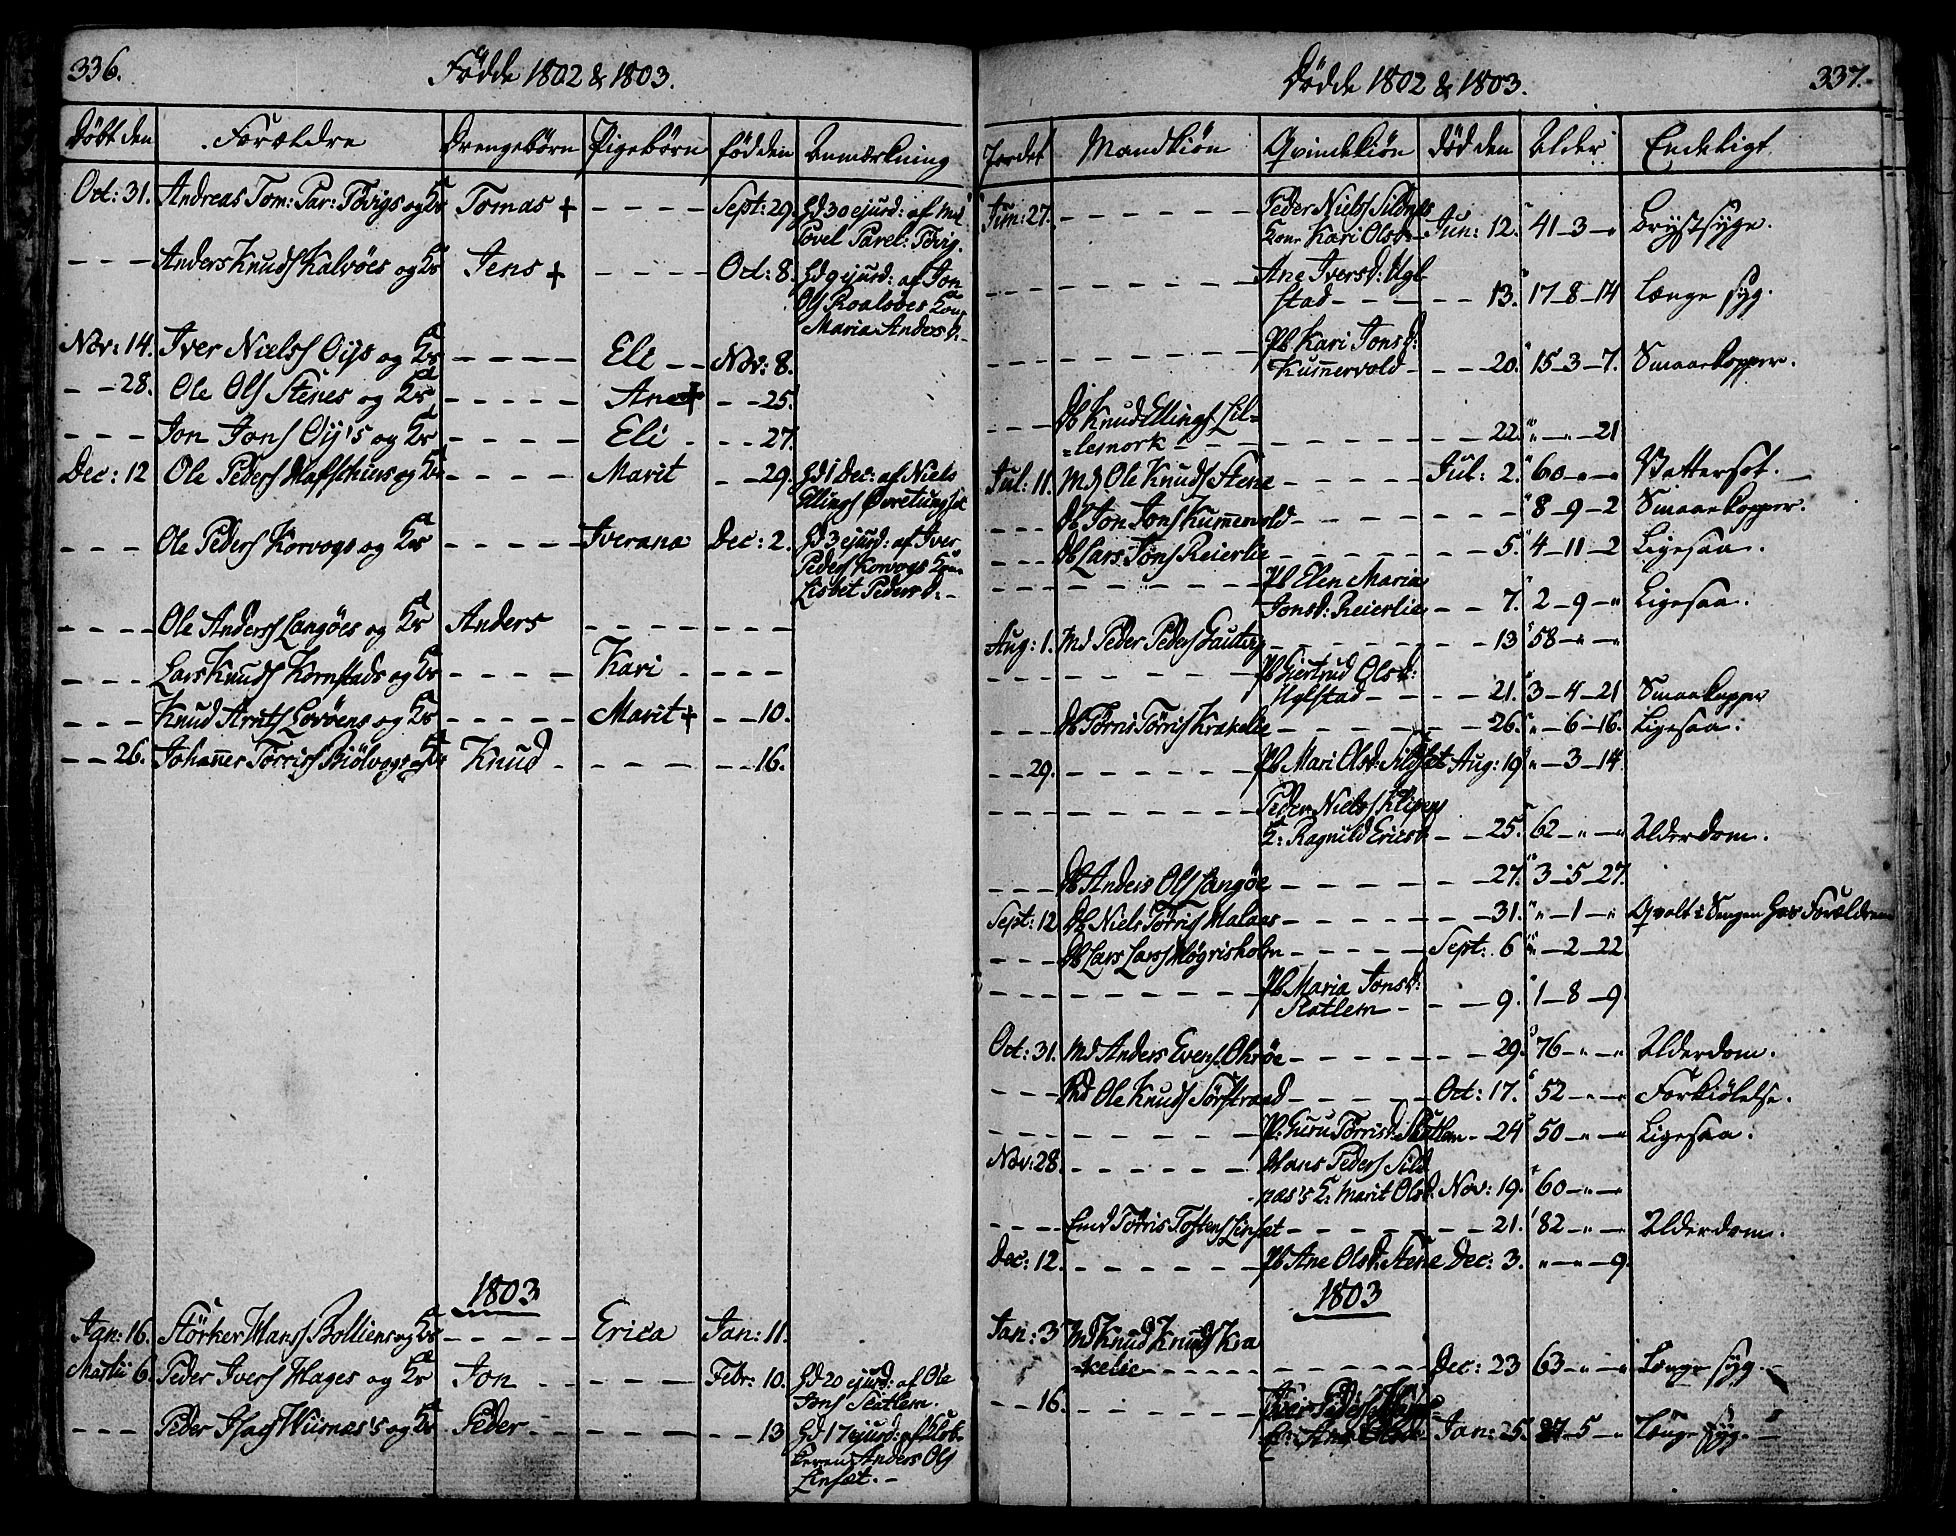 336.
Födde 1802 & 1803.
Döbt den Forældre Drengebörn Pigebörn född den Anmærkning
Oct: 31. Andreas Tom: Par: Tövigs og Kr Tomas + - - - - Sept: 29. Hd 30 ejusd: af Md
Povel Parel: Tövig.
- - - Anders Knuds Kalvöes og Kr Jens + - - - - Oct: 8. Hd 9 ejusd: af Jon
Ols Roalsöes Kone
Maria Anders D: -
Nov: 14. Iver Niels Öijs og Kr - - - - Eli - - Nov: 8.
- - 28. Ole Ols Stenes og Kr - - - - - Ane + - - 25.
- - - Jon Jons Öij's og Kr - - - - Eli - - - 27.
Dec: 12 Ole Peders og Kr - - - - Marit - - 29. Hd 1 Dec: af Niels
Ellings
- - - Ole Peders Korvogs og Kr - - - - Iverana Dec: 2. Hd 3 ejusd: af Iver
Peders Korvogs Kone
Lisbet Peders d: -
- - - Ole Anders Langöes og Kr Anders - - - - - - -
- - - Lars Knuds Kornstads og Kr - - - - Kari - - - -
- - - Knud Arnts Lovöens og Kr - - - - - Marit + - - 10.
- - 26. Johannes Torris Biölvogs og Kr Knud - - - - - - - 16.
1803
Jan: 16. Störker Hans Bolliens og Kr - - - - - Erica Jan: 11.
Martii 6. Peder Ivers Hages og Kr Jon - - - - - Febr: 10. Hd 20 ejusd: af Ole
Jons Statlem.
- - - Peder Isacs og Kr Peder - - - - - - 13 Hd 17 ejusd: af
Anders Ols
Linset. -
337.
Dödde 1802 & 1803.
Jordet Mandkiön Qvindekiön död den Alder Endeligt
Jun: 27. - - - - - - Peder Niels Sildnes
Kone Kari Olsd: - Jun: 12. 41 - 3 - " Brystsyge.
- - - - - - - - - Ane Iversd: Ugl-
stad - - - - - - 13. 17 - 8 - 14 Længe syg.
- - - - - - - - - Pb Kari Jonsd:
Kummervold - - - 20. 15 - 3 - 7. Smaakopper.
- - - Db Knud Ellings Lil=
=lemork - - - - - - - 22. " - " - 21
Jul: 11. Md Ole Knuds Stene - - - - - Jul: 2. 60 - " - " Vattersot.
- - - Db Jon Jons Kummervold - - - - - - - 8 - 9 - 2 Smaakopper.
- - - Db Lars Jons Reierlie - - - - - - - 5. 4 - 11 - 2 Ligesaa.
- - - - - - - - - Pb Elen Maria
Jonsd: Reierlie - - 7. 2 - 9 - " Ligesaa.
Aug: 1. Md Peder Peders - - - - - - - 13 58 - " - "
- - - - - - - - - Pb Giertrud Olsd:
Uglstad - - - - 21. 3 - 4 - 21 Smaakopper
- - - Db Törris Törris Krakelie - - - - - - 26. " - 6 - 16. Ligesaa.
- - 29. - - - - - - Pb Mari Olsd: Aug: 19 " - 3 - 14.
- - - - - - - - - Peder Niels Klipens
K: Ragnild Ericsd - - 25. 62 - " - " Alderdom.
- - - Db Anders Ols Langöe - - - - - - 27. 3 - 5 - 27.
Sept: 12 Db Niels Törris Malaas - - - - - - 31. " - 1 - " Qvalt i Sengen hos Forældrene
- - - Db Lars Lars Mögrisholm - - - - Sept: 6 " - 2 - 22
- - - - - - - - - Pb Maria Jonsd:
Statlem - - - 9. 1 - 8 - 9.
Oct: 31. Md Anders Evens Ohröe - - - - - - 29. 76 - " - " Alderdom.
- - - Md Ole Knuds Sörstrand - - - - - Oct: 17. 52 - " - " Forkiölelse.
- - - - - - - - - P: Guru Törrisd: Statlem - 24 50 - " - " Ligesaa.
Nov: 28. - - - - - - Hans Peders Sild
næs's K: Marit Olsd: Nov: 19. 60 - " - "
- - - Emd Törris Tostens Linset - - - - - - 21. 82 - " - " Alderdom.
Dec: 12. - - - - - - Pb Ane Olsd: Stene Dec: 3. " - " - 9.
1803
Jan: 3 Md Knud Knuds Kra
=kelie - - - - - - - - - - Dec: 23 63 - " - " Længe syg. -
- - 16. - - - - - - Iver Peders
K: Ane Olsd: Jan: 25. 27 - 5 - " Længe syg. -